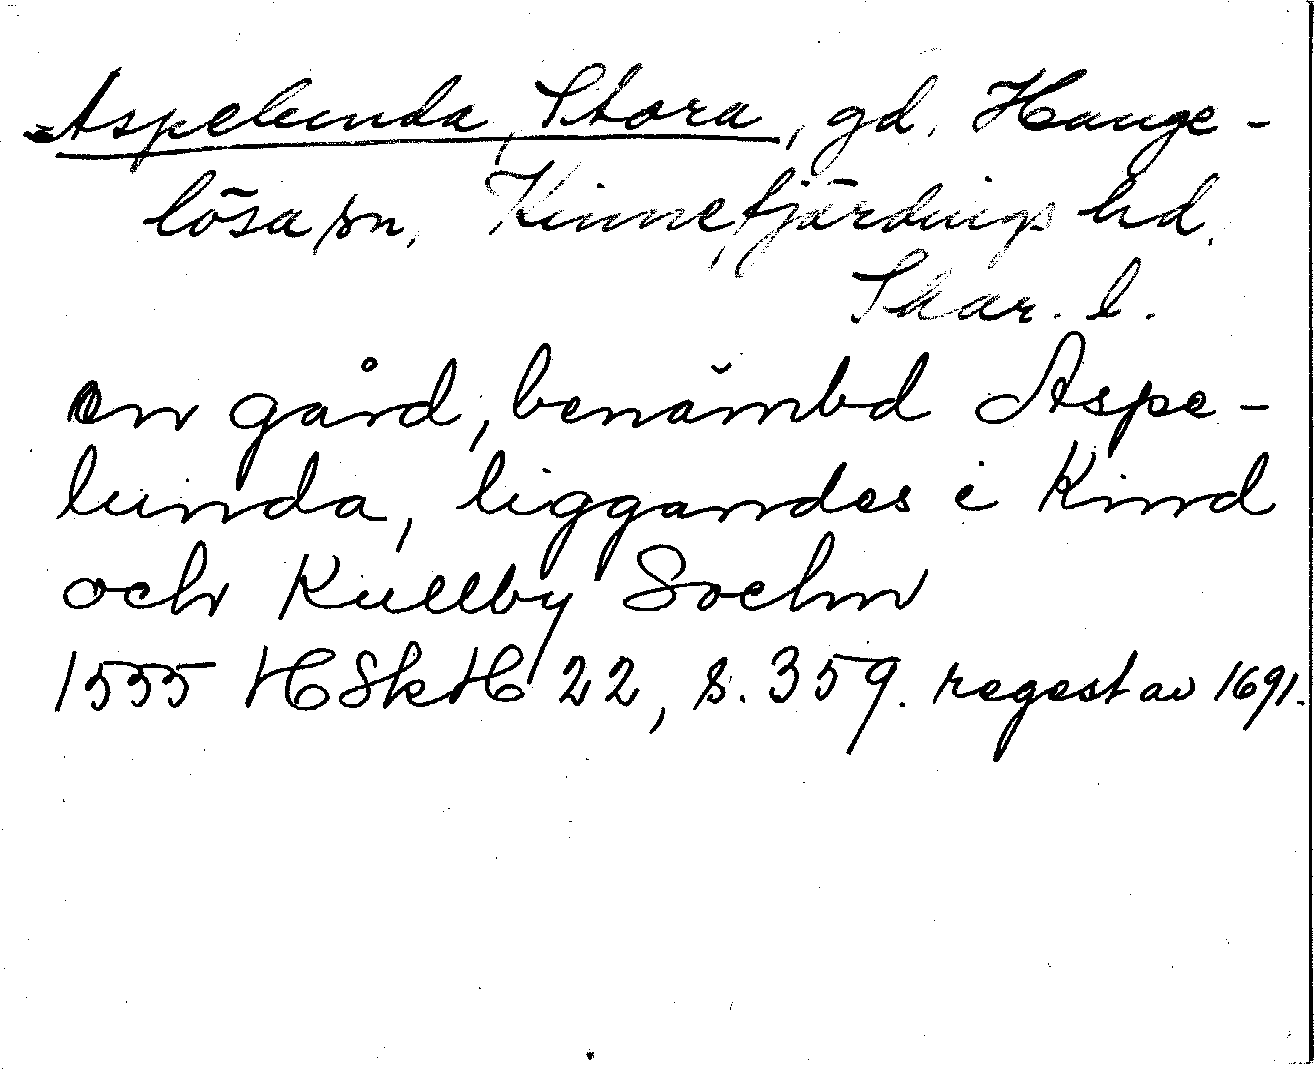 Aspelunda, Stora, gd, Hange-
lösa sn, Kinnefjärdings hd.
Skar. l.
en gård, benämbd Aspe-
lunda, liggandes i Kind
och Kullby Sochn
1555 HSkH 22, s. 359. regest av 1691.